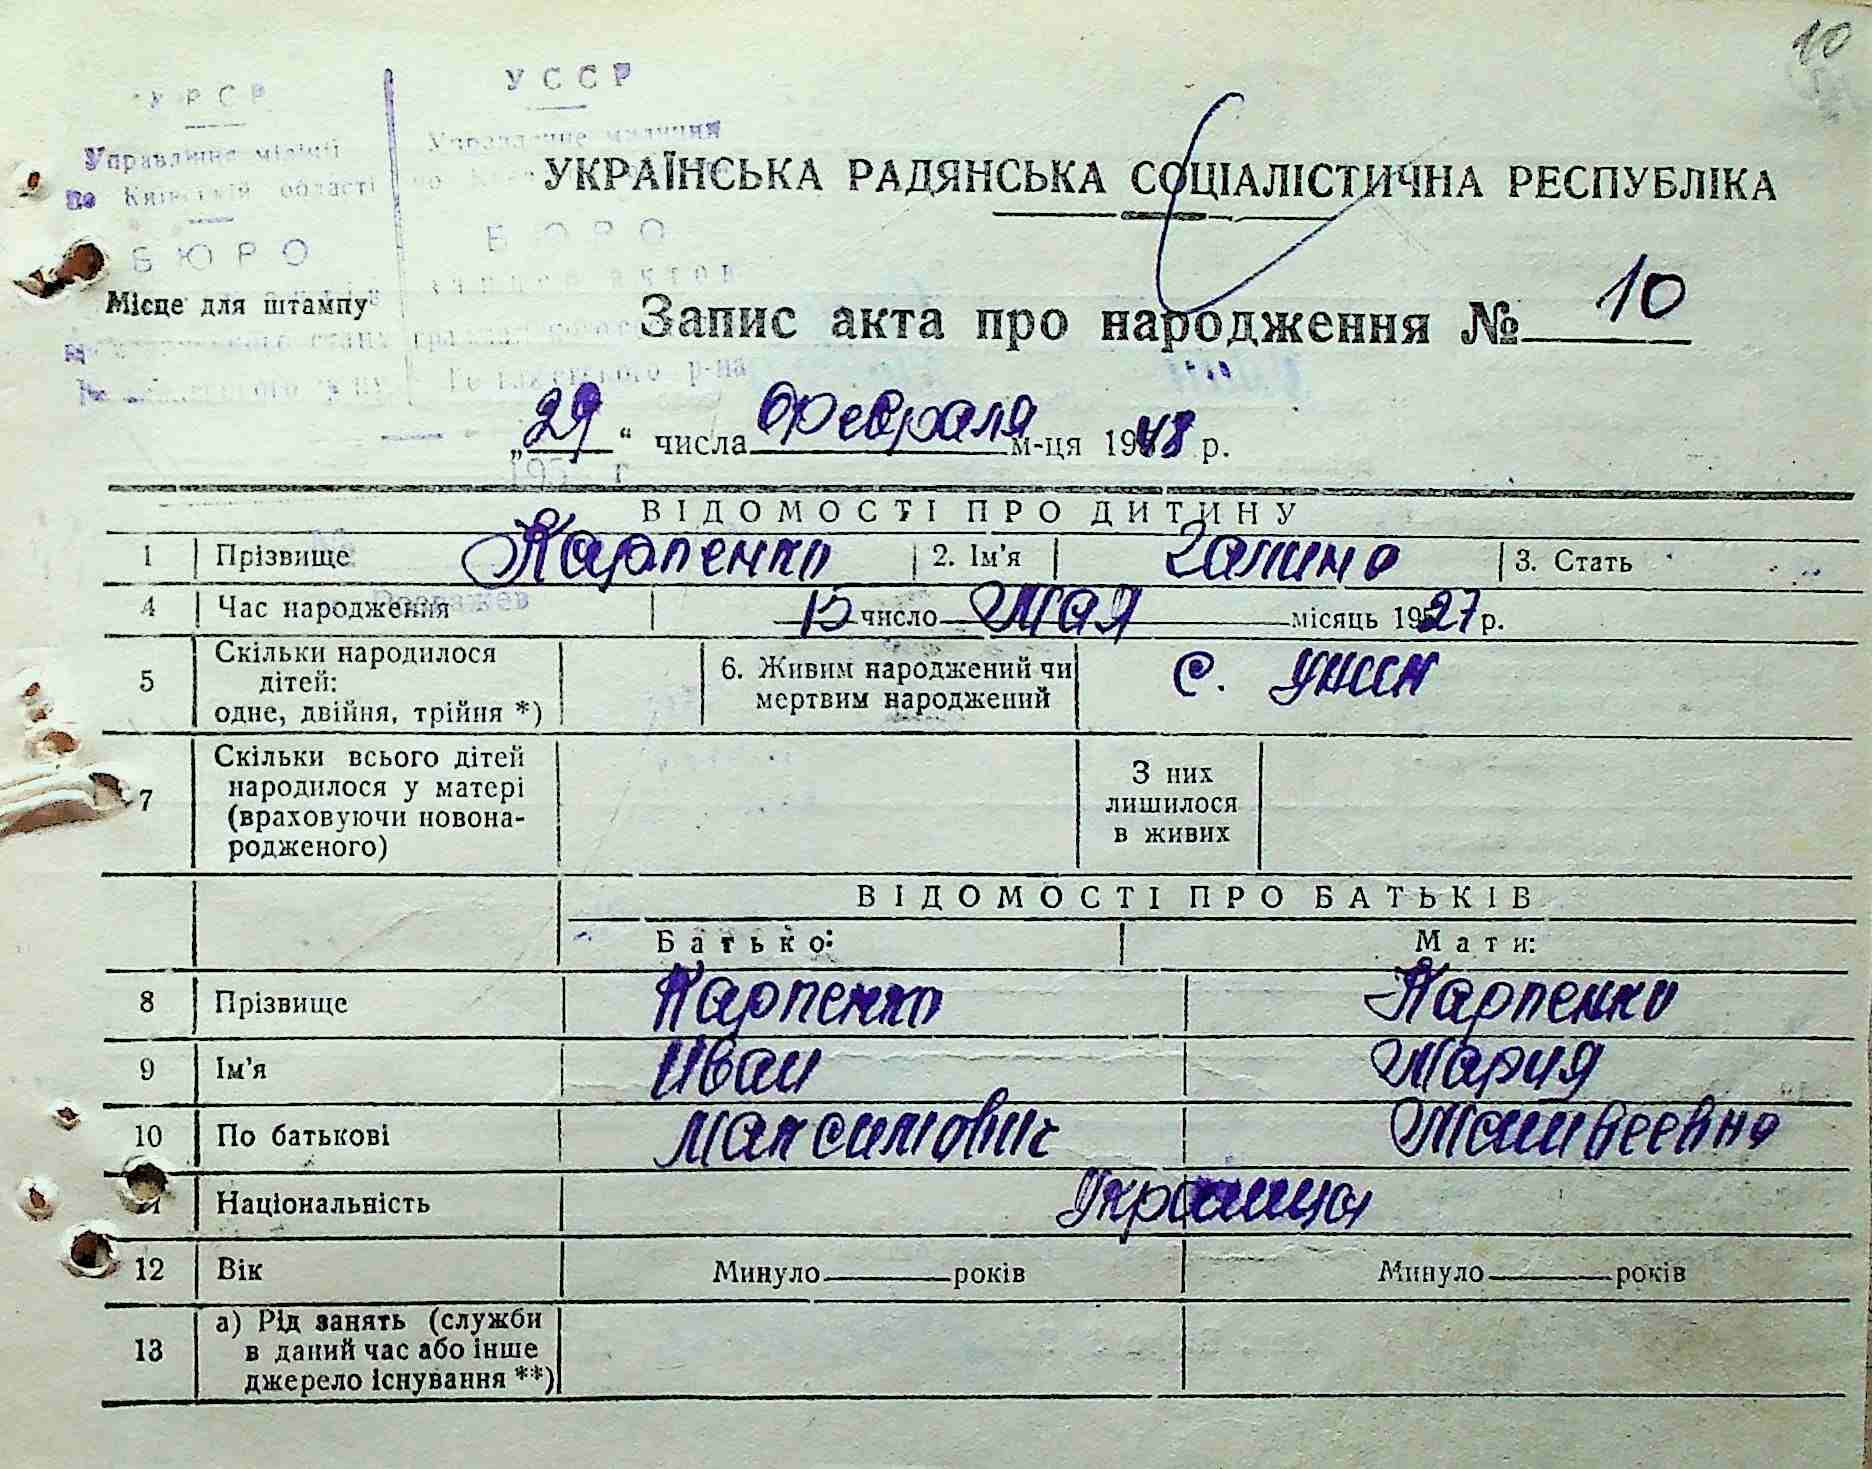 10
УРСР
УССР
Управління міліції
Управление милиции
по Київській області
УКРАЇНСЬКА РАДЯНСЬКА СОЦІАЛІСТИЧНА РЕСПУБЛІКА
БЮРО
БЮРО
записи актов
Місце для штампу
Запис акта про народження № 10
р-на
„29“ числа Февраля м-ця 1948 р.
195 г
ВІДОМОСТІ ПРО ДИТИНУ
1 Прізвище Карпенко 2. Ім'я Галина 3. Стать
4 Час народження 15 число Мая місяць 1927 р.
5 Скільки народилося дітей: одне, двійня, трійня *) 6. Живим народжений чи мертвим народжений с.
7 Скільки всього дітей народилося у матері (враховуючи новона-родженого) З них лишилося в живих
ВІДОМОСТІ ПРО БАТЬКІВ
Батько: Мати:
8 Прізвище Карпенко Карпенко
9 Ім'я Иван Мария
10 По батькові Максимович Матвеевна
11 Національність Украинцы
12 Вік Минуло років Минуло років
13 а) Рід занять (служби в даний час або інше джерело існування **)